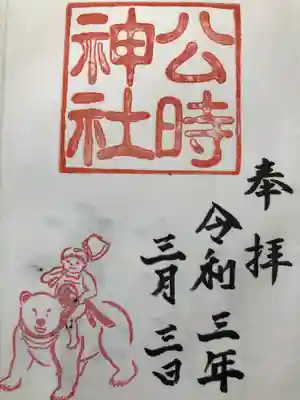 公時
神社
奉拝
令和三年
三月三日